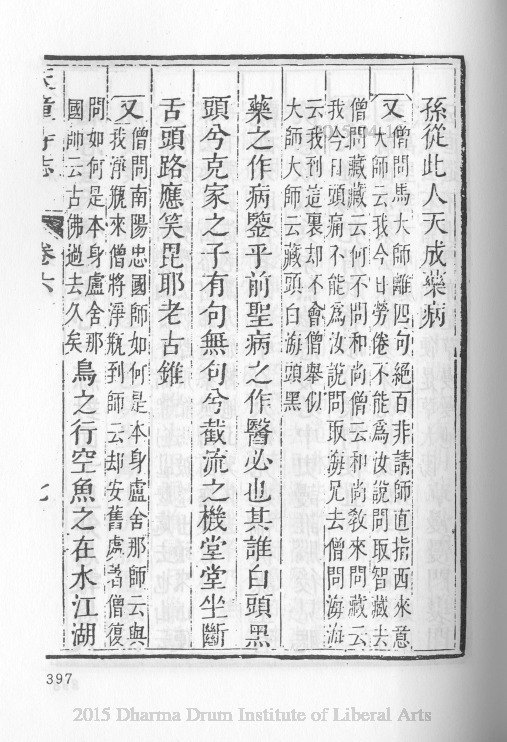 孫從此人天成藥病
又僧問馬大師離四句絕百非請師直指西來意
大師云我今日勞倦不能爲汝說問取智藏去
僧問藏藏云何不問和尚僧云和尚敎來問藏云
我今日頭痛不能爲汝說問取海兄去僧問海海
云我到這裏却不會僧舉似
大師大師云藏頭白海頭黑
藥之作病鑒乎前聖病之作醫必也其誰白頭黑
頭兮克家之子有句無句兮截流之機堂堂坐斷
舌頭路應笑毘耶老古錐
又僧問南陽忠國師如何是本身盧舍那師云與
我淨瓶來僧將淨瓶到師云却安舊處著僧復
問如何是本身盧舍那
國師云古佛過去久矣
鳥之行空魚之在水江湖
童寺志
卷六
七
397
2015 Dharma Drum Institute of Liberal Arts